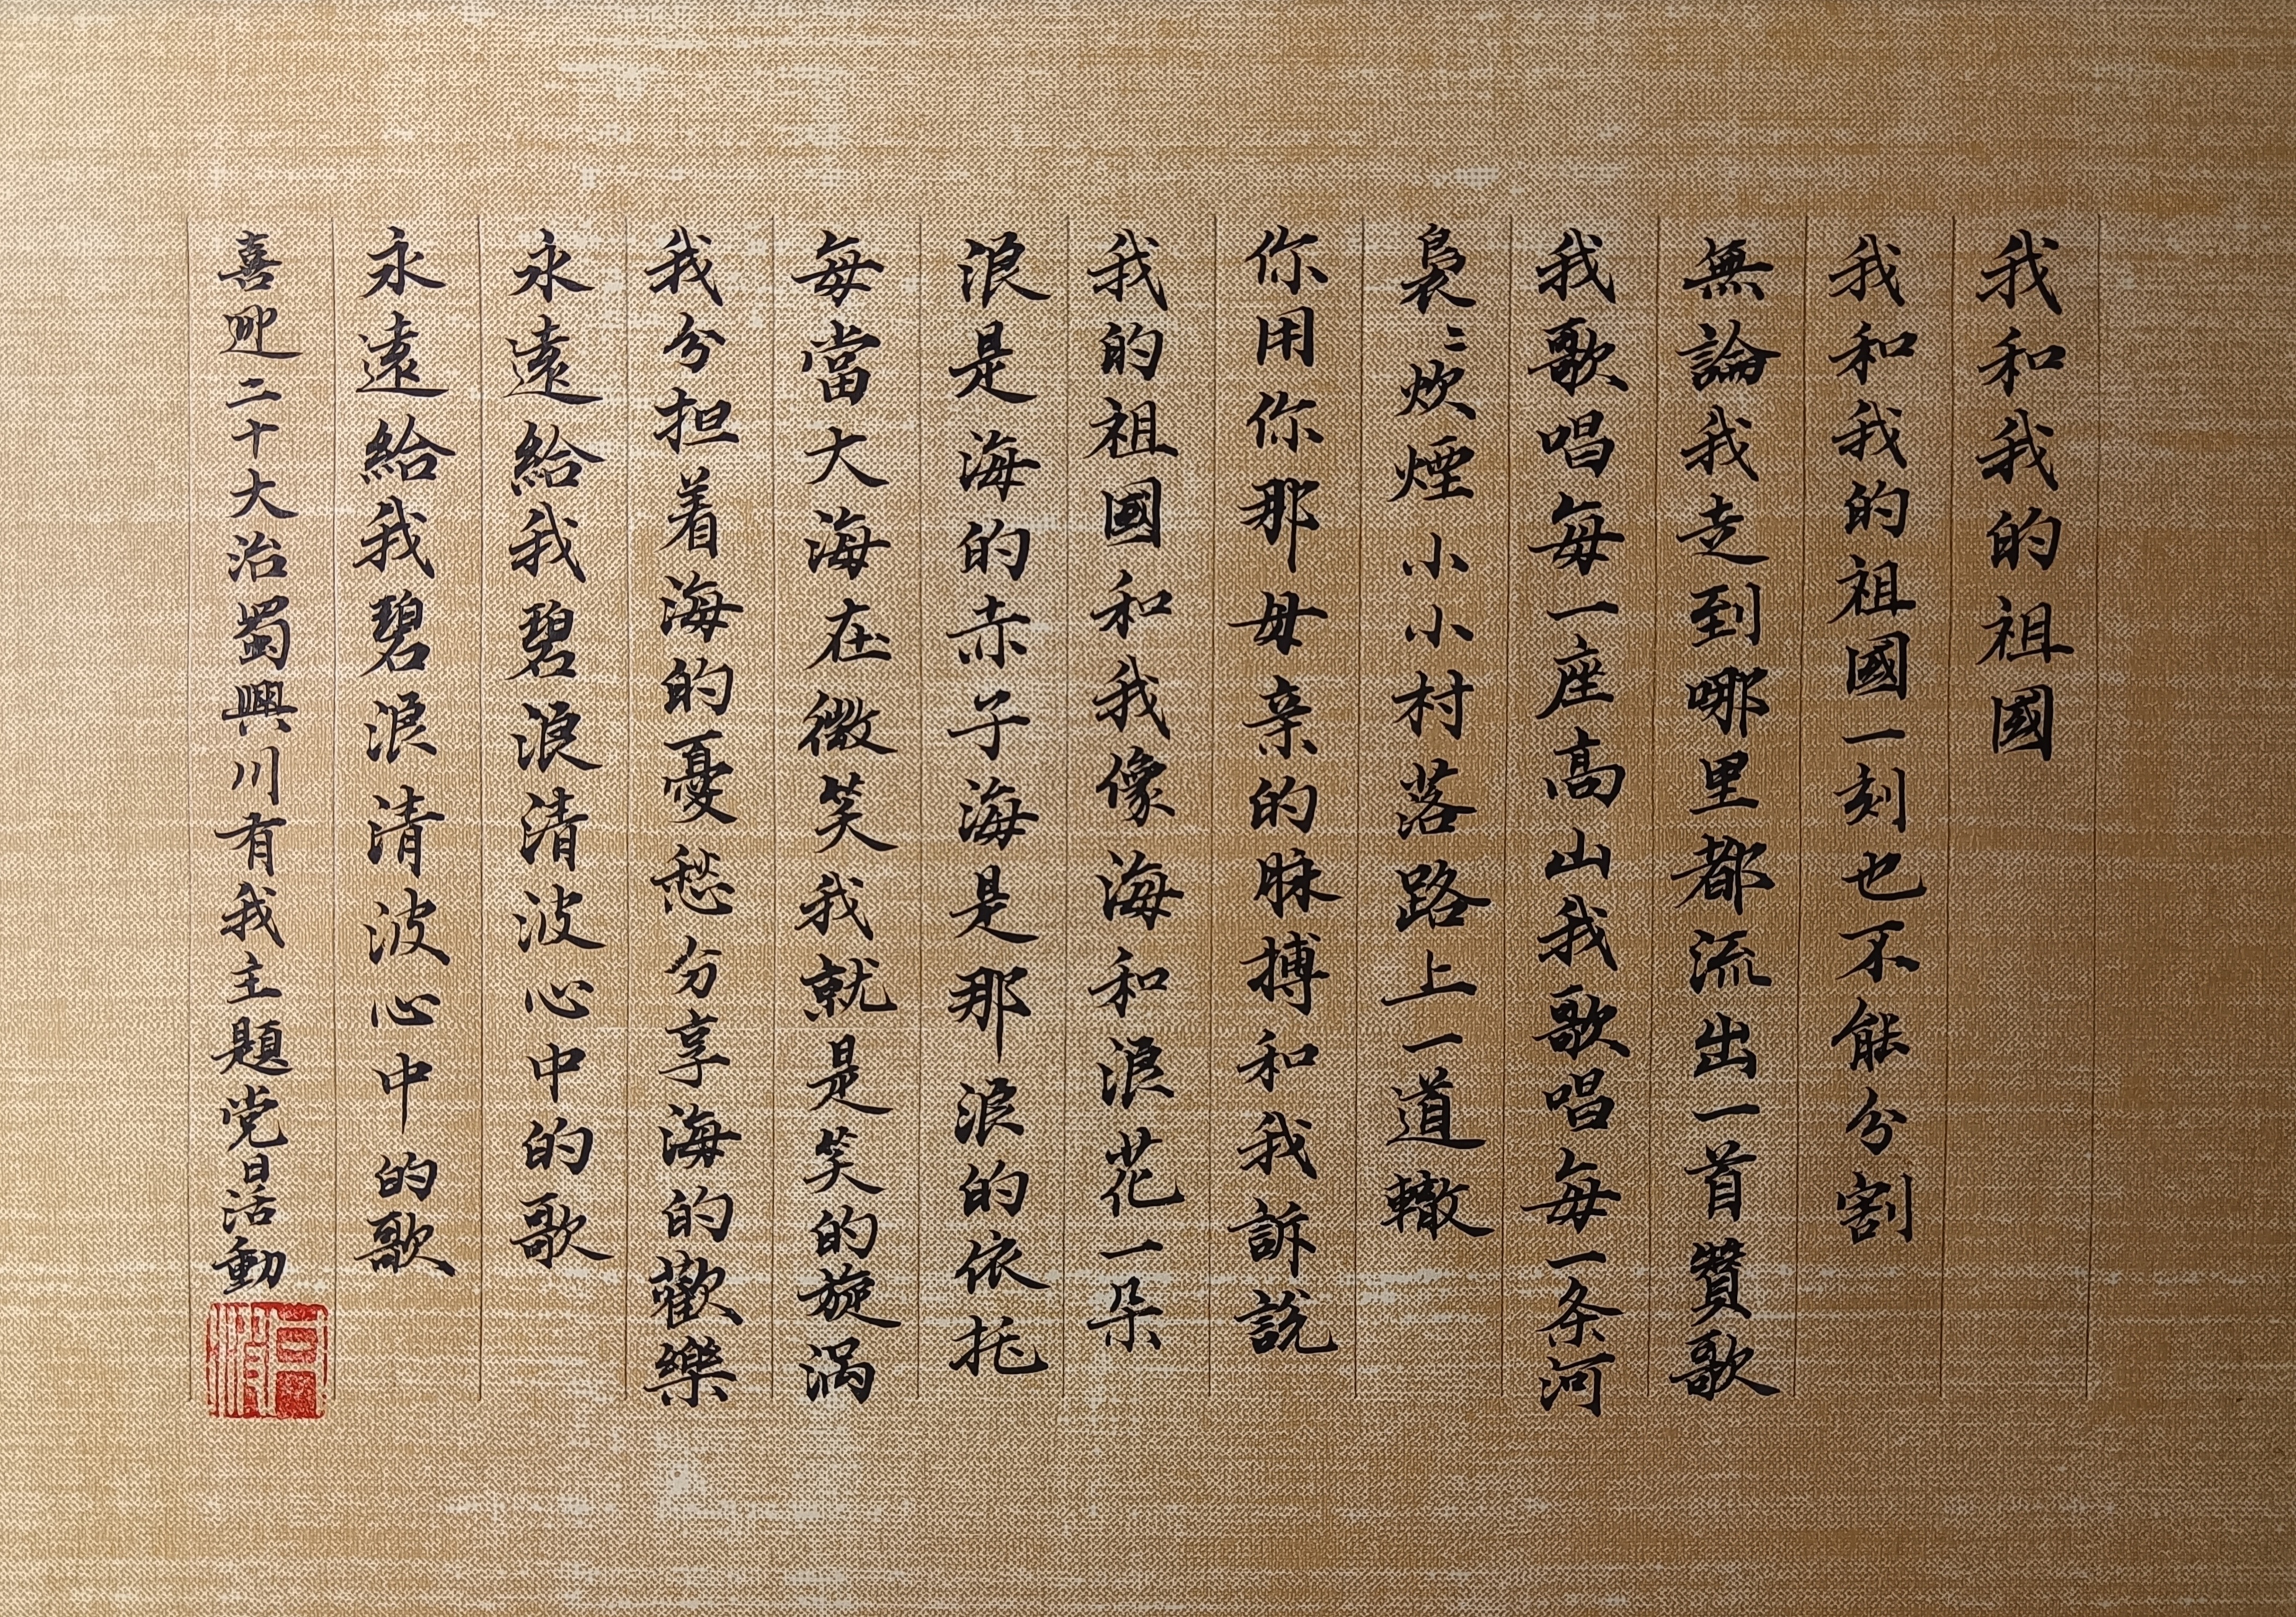 我和我的祖國
我和我的祖國一刻也不能分割
無論我走到哪里都流出一首贊歌
我歌唱每一座高山我歌唱每一条河
裊〻炊煙小小村落路上一道轍
你用你那母亲的脉搏和我訴説
我的祖國和我像海和浪花一朵
浪是海的赤子海是那浪的依托
每當大海在微笑我就是笑的旋涡
我分担着海的憂愁分享海的歡樂
永遠給我碧浪清波心中的歌
永遠給我碧浪清波心中的歌
喜迎二十大治蜀興川有我主題党日活動